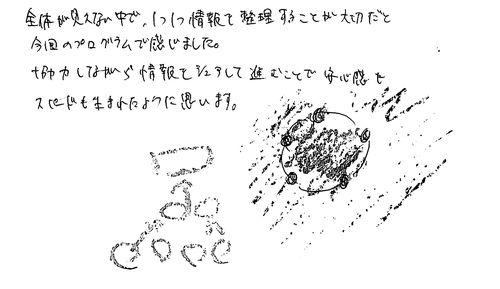 全体が見えない中で、1つ1つ情報を整理することが大切だと
今回のプログラムで感じました。
協力しながら情報をシェアして進むことで安心感も
スピードも生まれたように思います。